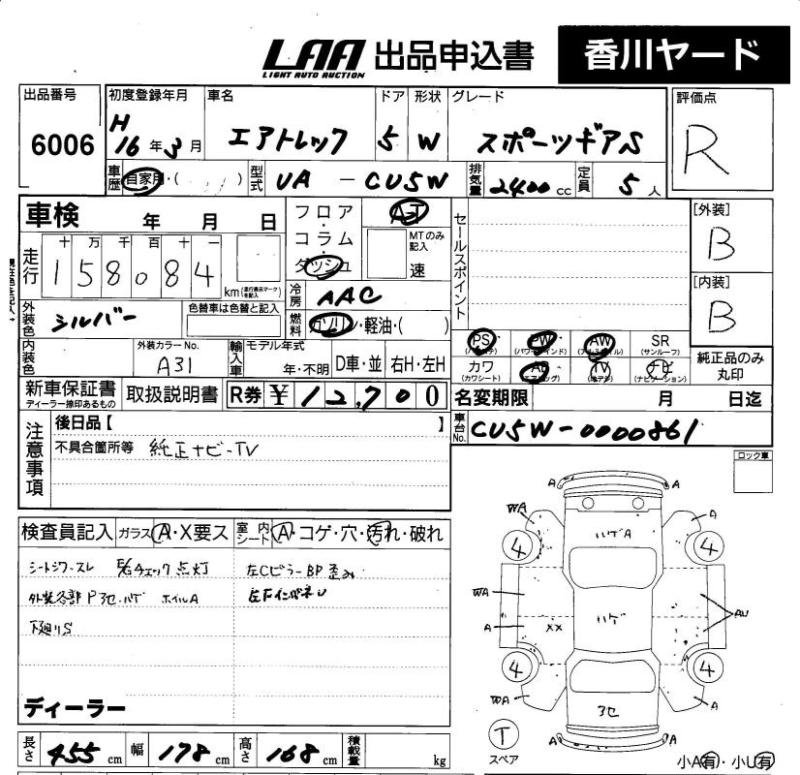 LAA 出品申込書 香川ヤード
LIGHT AUTO AUCTION
出品番号 初度登録年月 車名 ドア 形状 グレード 評価点
6006 H16年3月 エアトレック 5 W スポーツギアS R
車歴 自家用・( ) 型式 UA - CU5W 排気量 2400cc 定員 5人
車検 年 月 日 フロア・コラム・ダッシュ AT セールスポイント [外装]
走行 十万千百十一 MTのみ記入 速 B
158084 km (走行表示マークを記入)
冷房 AAC [内装]
外装色 シルバー 色替車は色替と記入 燃料 ガソリン・軽油・( ) B
PS (パワステ) PW (パワーウインド) AW (アルミホイル) SR (サンルーフ)
内装色 外装カラーNo. A31 輸入車 モデル年式 年・不明 D車・並 右H・左H カワ (カワシート) AB (エアバッグ) TV (地デジ) ナビ (ナビゲーション) 純正品のみ丸印
新車保証書 ディーラー捺印あるもの 取扱説明書 R券 ¥12,700 名変期限 月 日迄
注意事項 後日品【 】 車台No. CU5W-0000861
不具合箇所等 純正ナビ-TV
ロック車
検査員記入 ガラス A・X要ス 室内シート A・コゲ・穴・汚れ・破れ
シートシワ・スレ チェック点灯 左Cピラー BP歪み
外装各部P 凹・ハゲ ホイルA 左FインパネU
下廻りS
ディーラー
長さ 455cm 幅 178cm 高さ 168cm 積載量 kg
A A
WA A
ハゲA
4 4
WA ハゲ AU
A XX
4 4
WA A
T
スペア
A A
小A有・小U有